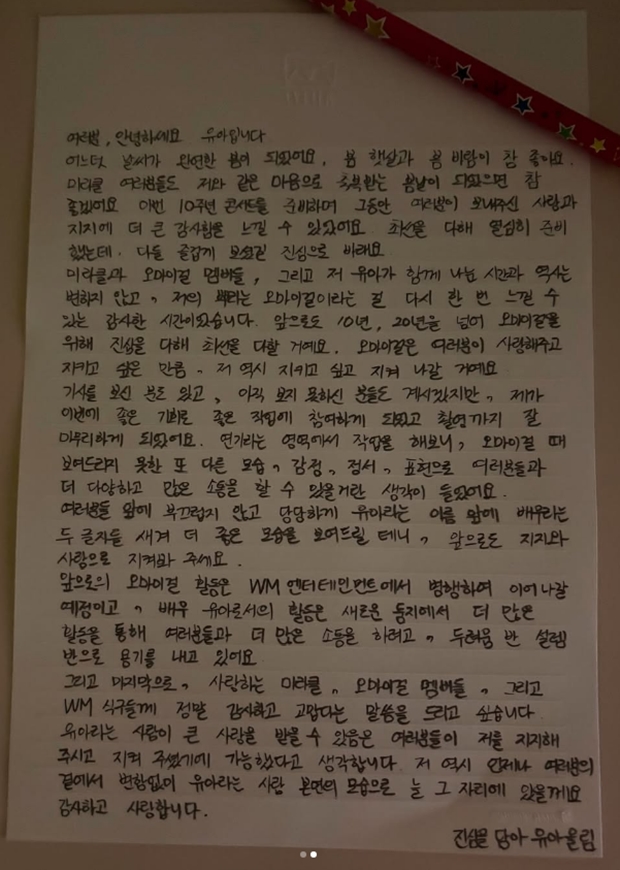 여러분, 안녕하세요 유아입니다
어느덧 날씨가 완연한 봄이 되었어요, 봄 햇살과 봄 바람이 참 좋아요.
미라클 여러분들도 저와 같은 마음으로 축복받는 봄날이 되었으면 참
좋겠어요 이번 10주년 콘서트를 준비하며 그동안 여러분이 보내주신 사랑과
지지에 더 큰 감사함을 느낄 수 있었어요. 최선을 다해 열심히 준비
했는데. 다들 즐겁게 보셨길 진심으로 바래요.
미라클과 오마이걸 멤버들, 그리고 저 유아가 함께 나눈 시간과 역사는
변하지 않고, 저의 뿌리는 오마이걸이라는 걸 다시 한 번 느낄 수
있는 감사한 시간이었습니다. 앞으로도 10년, 20년을 넘어 오마이걸을
위해 진심을 다해 최선을 다할 거예요. 오마이걸은 여러분이 사랑해주고
지키고 싶은 만큼, 저 역시 지키고 싶고 지켜 나갈 거예요
기사를 보신 분도 있고, 아직 보지 못하신 분들도 계시겠지만, 제가
이번에 좋은 기회로 좋은 작업에 참여하게 되었고 촬영까지 잘
마무리하게 되었어요. 연기라는 영역에서 작업을 해보니, 오마이걸 때
보여드리지 못한 또 다른 모습, 감정, 정서, 표현으로 여러분들과
더 다양하고 많은 소통을 할 수 있을거란 생각이 들었어요.
여러분들 앞에 부끄럽지 않고 당당하게 유아라는 이름 앞에 배우라는
두 글자를 새겨 더 좋은 모습을 보여드릴 테니, 앞으로도 지지와
사랑으로 지켜봐 주세요.
앞으로의 오마이걸 활동은 WM엔터테인먼트에서 병행하여 이어나갈
예정이고, 배우 유아로서의 활동은 새로운 둥지에서 더 많은
활동을 통해 여러분들과 더 많은 소통을 하려고, 두려움 반 설렘
반으로 용기를 내고 있어요
그리고 마지막으로, 사랑하는 미라클, 오마이걸 멤버들, 그리고
WM 식구들께 정말 감사하고 고맙다는 말씀을 드리고 싶습니다.
유아라는 사람이 큰 사랑을 받을 수 있음은 여러분들이 저를 지지해
주시고 지켜 주셨기에 가능했다고 생각합니다. 저 역시 언제나 여러분의
곁에서 변함없이 유아라는 사람 본연의 모습으로 늘 그 자리에 있을게요
감사하고 사랑합니다.
진심을 담아 유아올림